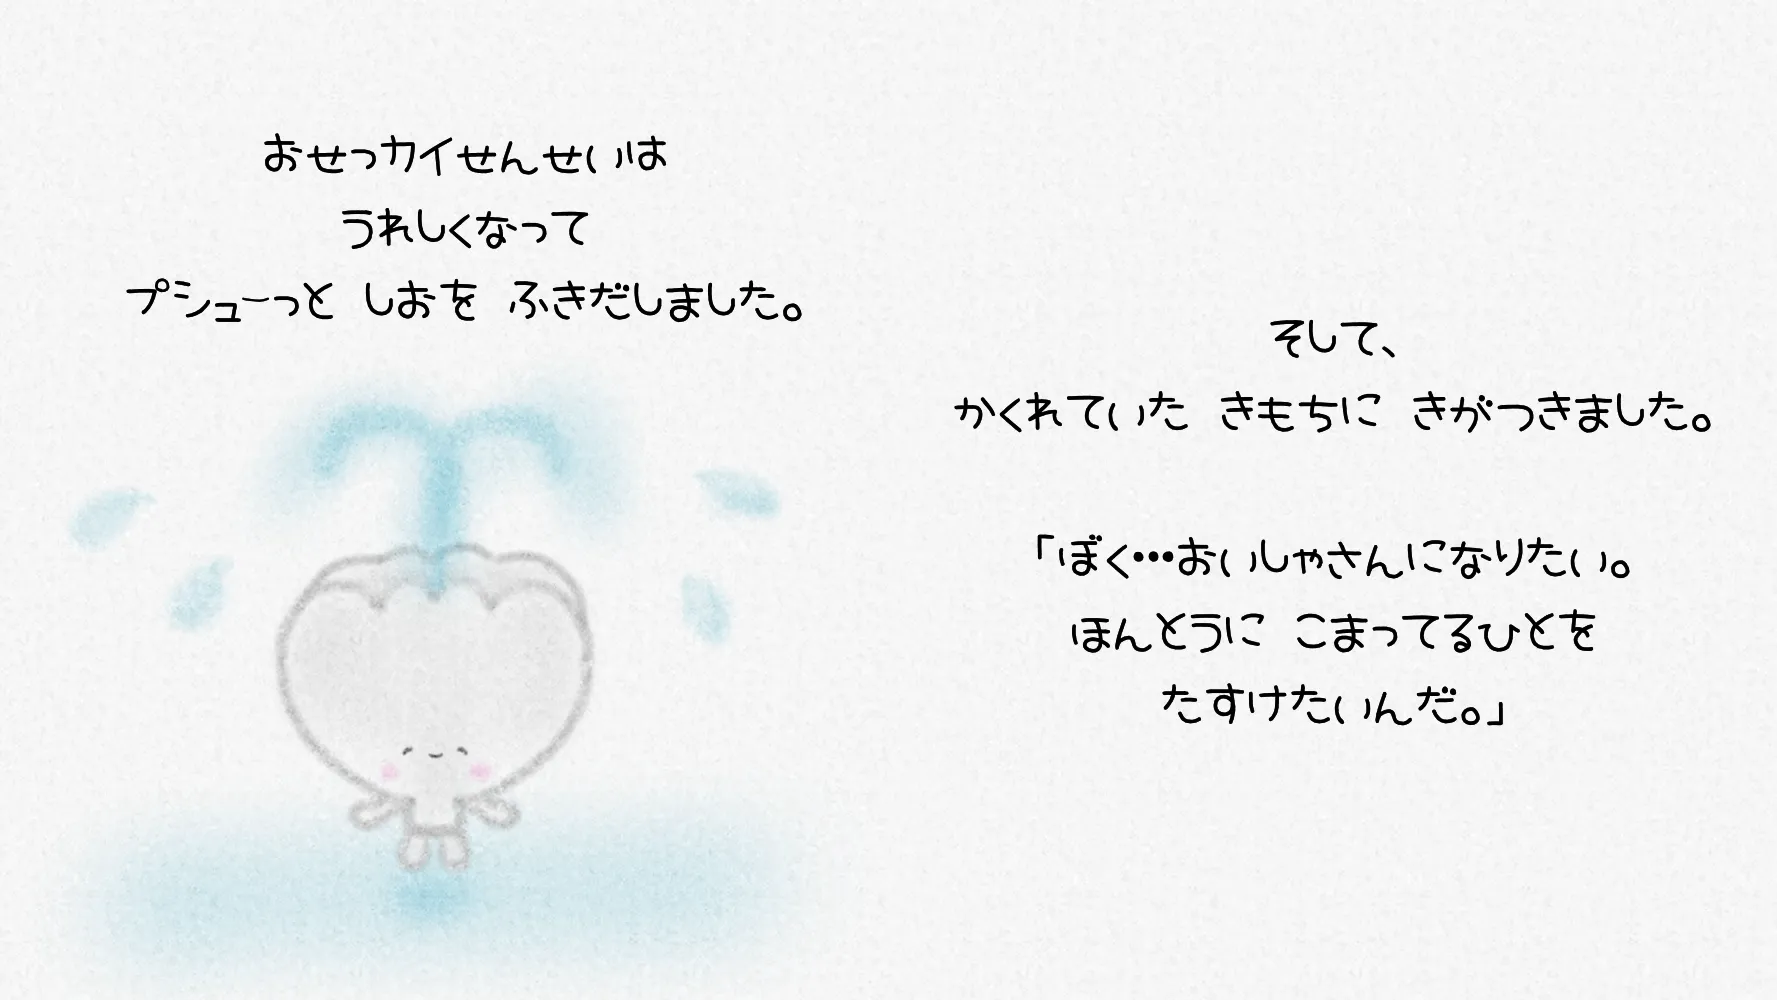 おせっカイせんせいは
うれしくなって
プシューっと しおを ふきだしました。
そして、
かくれていた きもちに きがつきました。
「ぼく…おいしゃさんになりたい。
ほんとうに こまってるひとを
たすけたいんだ。」